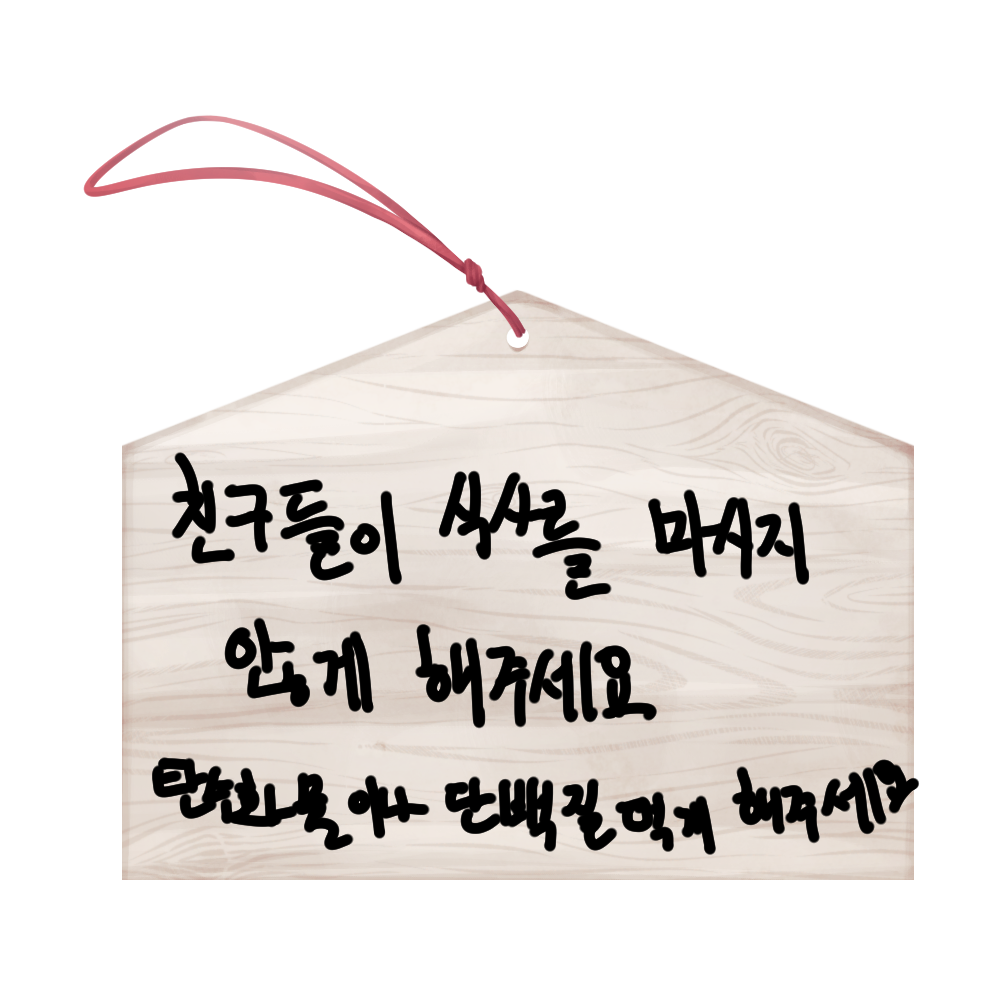 친구들이 식사를 마시지
않게 해주세요
탄수화물이나 단백질 먹게 해주세요